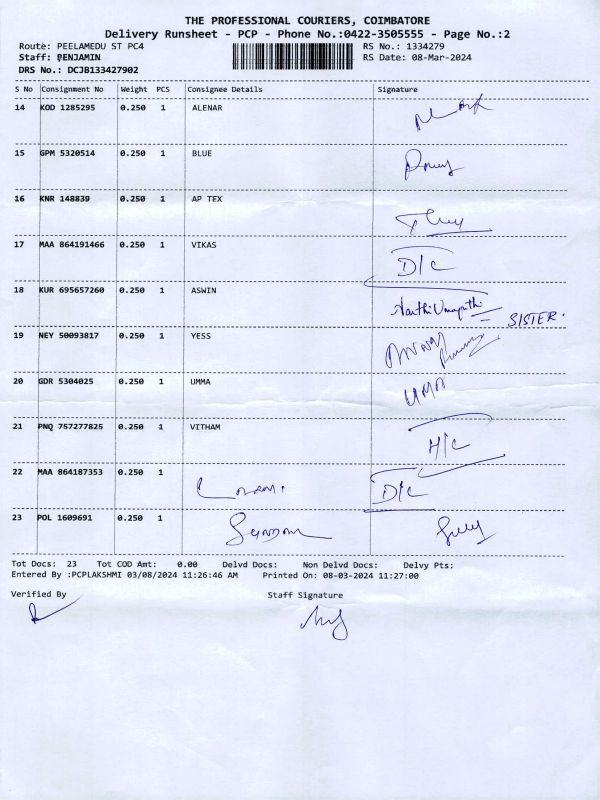 THE PROFESSIONAL COURIERS, COIMBATORE
Delivery Runsheet - PCP - Phone No.:0422-3505555 - Page No.:2
Route: PEELAMEDU ST PC4 RS No.: 1334279
Staff: BENJAMIN RS Date: 08-Mar-2024
DRS No.: DCJB133427902
S No Consignment No Weight PCS Consignee Details Signature
14 KOD 1285295 0.250 1 ALENAR
15 GPM 5320514 0.250 1 BLUE
16 KNR 148839 0.250 1 AP TEX
17 MAA 864191466 0.250 1 VIKAS D/C
18 KUR 695657260 0.250 1 ASWIN
SISTER.
19 NEY 50093817 0.250 1 YESS
20 GDR 5304025 0.250 1 UMMA UMA
21 PNQ 757277825 0.250 1 VITHAM H/C
22 MAA 864187353 0.250 1 D/C
23 POL 1609691 0.250 1
Tot Docs: 23 Tot COD Amt: 0.00 Delvd Docs: Non Delvd Docs: Delvy Pts:
Entered By :PCPLAKSHMI 03/08/2024 11:26:46 AM Printed On: 08-03-2024 11:27:00
Verified By Staff Signature